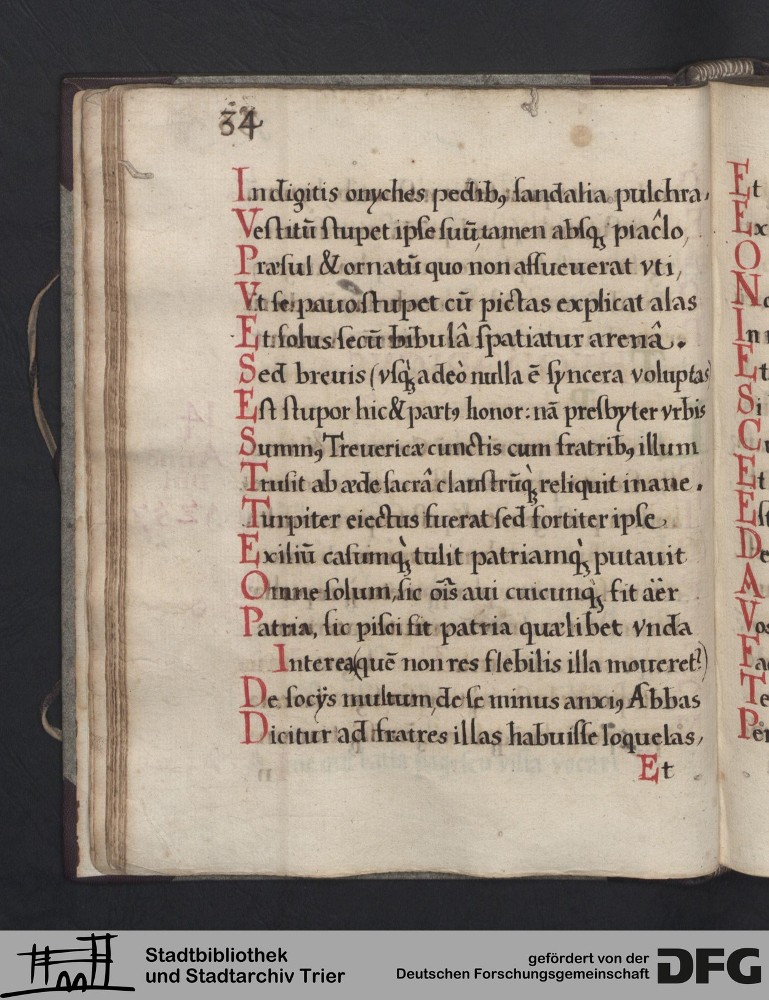 34
In digitis onyches pedibꝫ sandalia pulchra,
Vestitū stupet ipse suū, tamen absqꝫ piaĉlo,
Præsul & ornatū quo non assueuerat vti,
Vt se pauo stupet cū pictas explicat alas
Et solus secū bibulâ spatiatur arenâ.
Sed breuis (vsqꝫ adeò nulla ē syncera voluptas)
Est stupor hic & partꝰ honor: nā presbyter vrbis
Summꝰ Treuericæ cunctis cum fratribꝫ illum
Trusit ab æde sacrâ claustrūqꝫ reliquit inane.
Turpiter eiectus fuerat sed fortiter ipse,
Exiliū casumqꝫ tulit patriamqꝫ putauit
Omne solum, sic oīs aui cuicunqꝫ fit aër
Patria, sic pisci fit patria quælibet vnda
Interea (quē non res flebilis illa moueret?)
De socÿs multum, de se minus anxiꝰ Abbas
Dicitur ad fratres illas habuisse loquelas,
Et
Et
Ex
O
N
In
Et
Si
C
E
Est
De
A
Vos
F
Te
Per
Stadtbibliothek
und Stadtarchiv Trier
gefördert von der
Deutschen Forschungsgemeinschaft
DFG